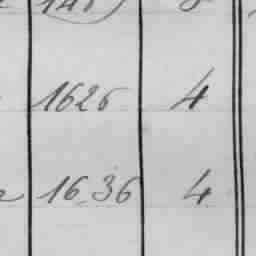 1626 4
1636 4